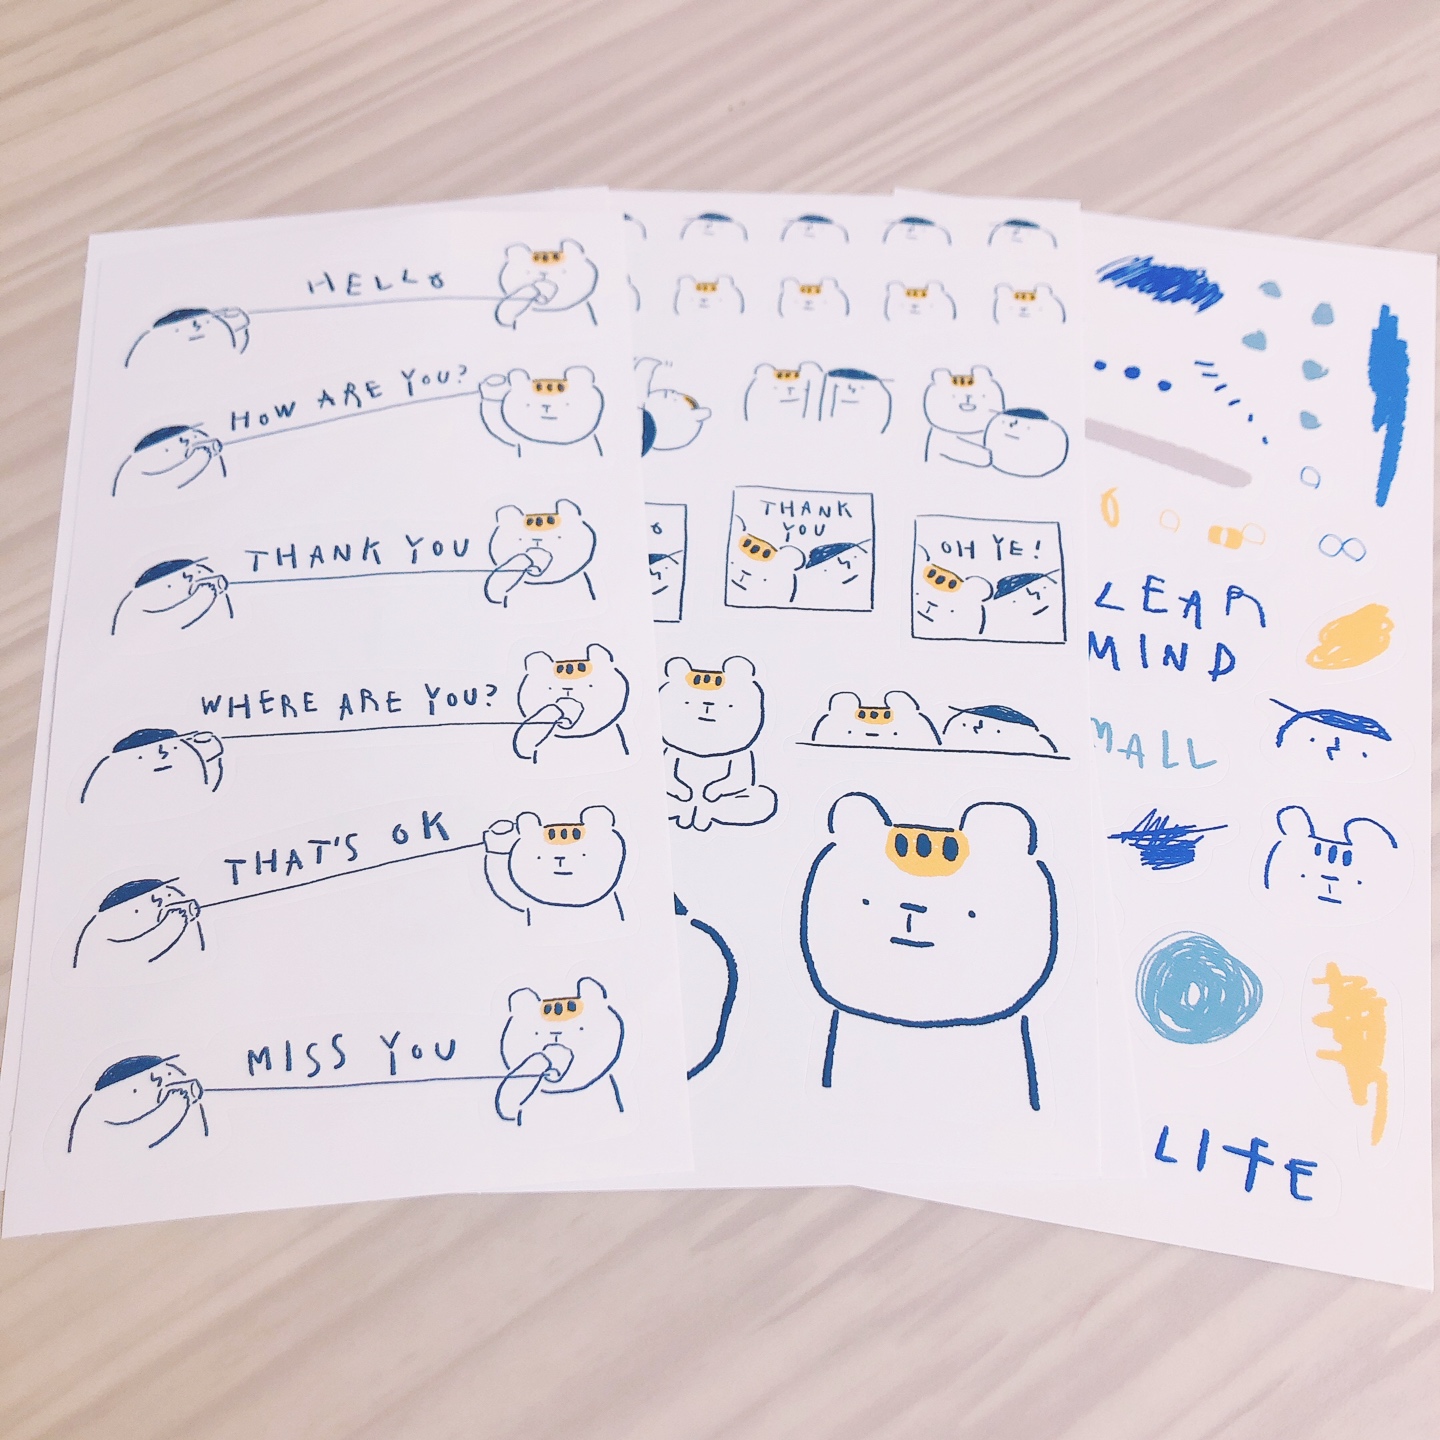 HELLO
HOW ARE YOU?
THANK YOU
WHERE ARE YOU?
THAT'S OK
MISS YOU
THANK
YOU
OH YE!
LEAR
MIND
MALL
LIFE